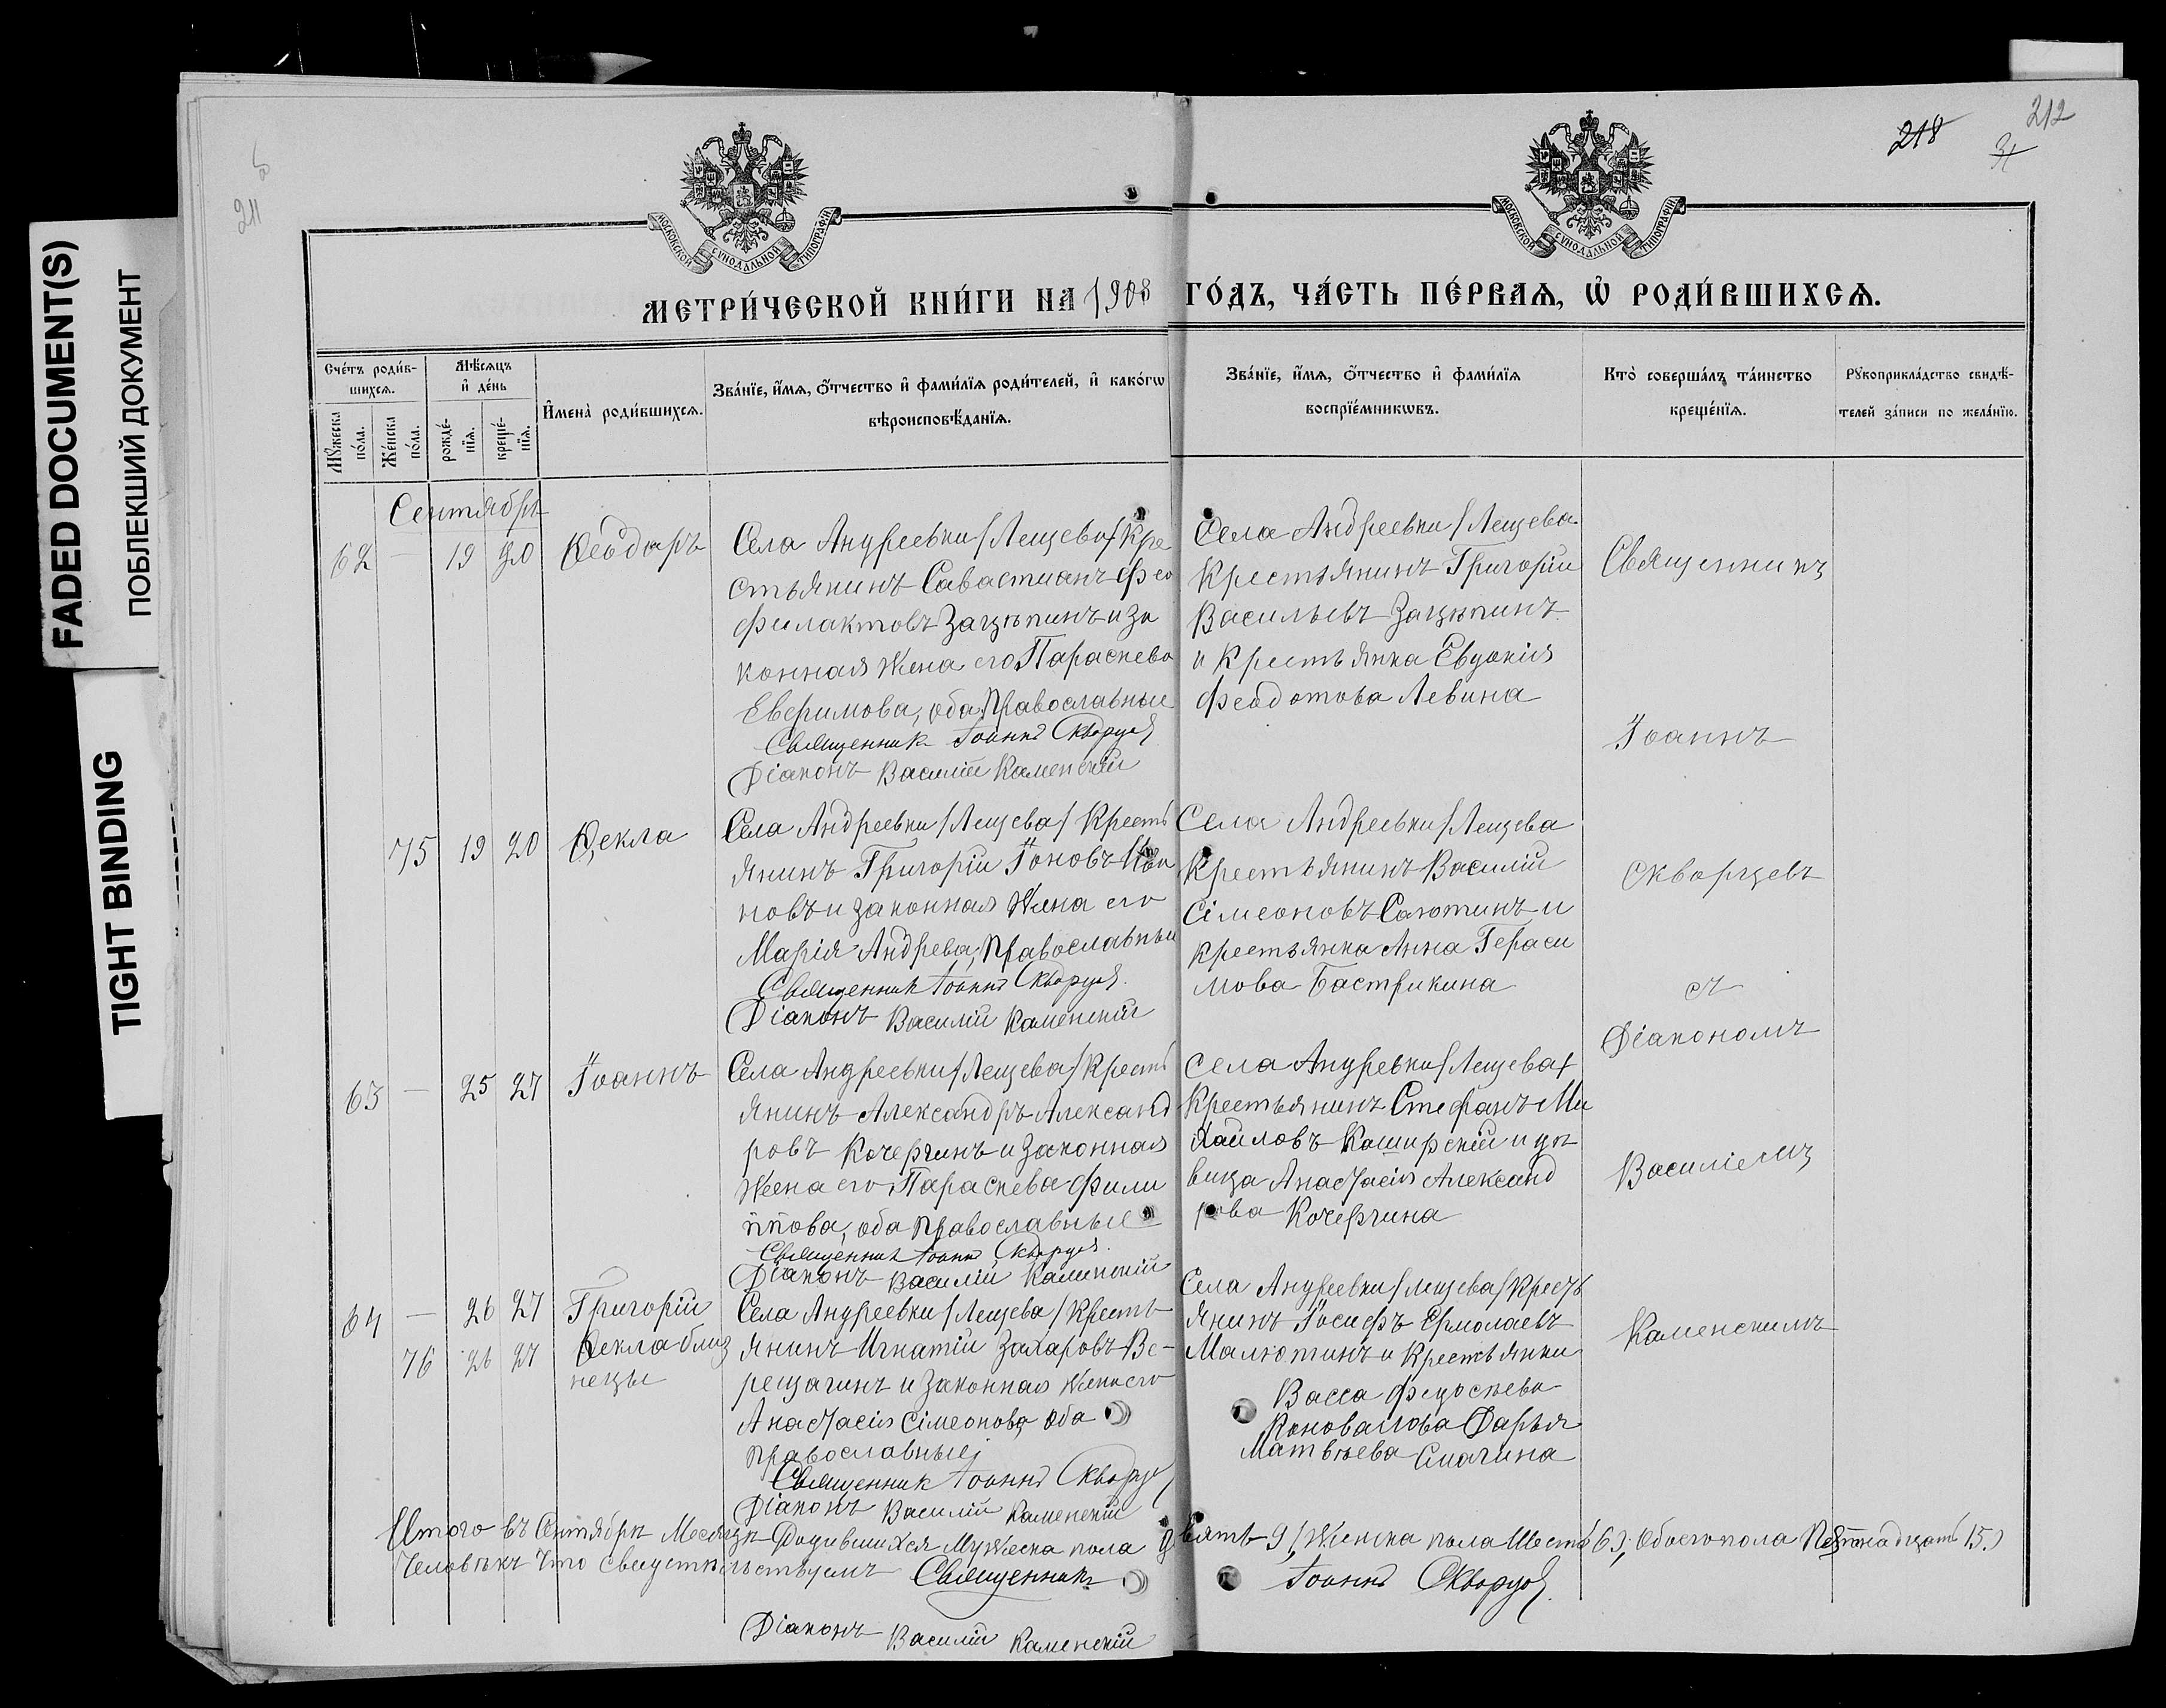 FADED DOCUMENT(S)
ПОБЛЕКШИЙ ДОКУМЕНТ
TIGHT BINDING
211
218
212
МОСКОВСКОЙ СѴНОДАЛЬНОЙ ТИПОГРАФІИ
МОСКОВСКОЙ СѴНОДАЛЬНОЙ ТИПОГРАФІИ
МЕТРИ́ЧЕСКОЙ КНИ́ГИ НА 1908 ГО́ДЪ, ЧА́СТЬ ПЕ́РВАѦ, Ѡ҆ РОДИ́ВШИХСѦ.
Сче́тъ роди́вшихсѧ.
Мꙋ́жеска по́ла.
Же́нска по́ла.
Мѣ́сѧцъ и҆ де́нь
рожде́нїѧ.
креще́нїѧ.
И҆мена̀ роди́вшихсѧ.
Зва́нїе, и҆́мѧ, ѻ҆́тчество и҆ фами́лїѧ роди́телей, и҆ како́гѡ вѣроисповѣ́данїѧ.
Зва́нїе, и҆́мѧ, ѻ҆́тчество и҆ фами́лїѧ воспрїе́мникѡвъ.
Кто̀ соверша́лъ та́инство креще́нїѧ.
Рꙋкоприкла́дство свидѣ́телей за́писи по жела́нїю.
Сентябрь
62 — 19 20 Ѳеодоръ
Села Андреевки /Лещева/ Кре
стьянинъ Савастианъ Фео
филактовъ Зацѣпинъ и за
конная жена его Параскева
Евфимова, оба православные
Священникъ Іоаннъ Скворцов
Діаконъ Василій Каменскій
Села Андреевки /Лещева
Крестьянинъ Григорій
Васильевъ Зацѣпинъ
и Крестьянка Евдокія
Феодотова Левина
Священникъ
Іоаннъ
Скворцевъ
съ
Діакономъ
Василіемъ
Каменскимъ
75 19 20 Ѳекла
Села Андреевки /Лещева/ Кресть
янинъ Григорій Іоновъ Ива
новъ и законная жена его
Марія Андрева, православные
Священник Іоаннъ Скворцов.
Діаконъ Василій Каменскій
Села Андреевки /Лещева
Крестьянинъ Василій
Сімеоновъ Салютинъ и
крестьянка Анна Гераси
мова Бастрикина
63 — 25 27 Іоаннъ
Села Андреевки /Лещева/ Кресть
янинъ Александръ Александ
ровъ Кочергинъ и законная
жена его Параскева Фили
ппова, оба православные
Священник Іоаннъ Скворцов.
Діаконъ Василій Каменскій
Села Андревки /Лещева/
Крестьянинъ Стефанъ Ми
хайловъ Каширскій и дѣ
вица Анастасія Александ
рова Кочергина
64 — 26 27 Григорій
76 26 27 Ѳекла близ
нецы
Села Андреевки /Лещева/ Кресть
янинъ Игнатій Захаровъ Ве-
рещагинъ и законная жена его
Анастасія Сімеонова, оба
православные;
Священник Іоаннъ Скворцов
Діаконъ Василій Каменскій
Села Андреевки /Лещева/ Кресть
янинъ Іосифъ Ермолаевъ
Малютинъ и Крестьянки
Васса Федосѣева
Коновалова Дарья
Матвѣева Смагина
Итого въ Сентябрѣ Месяцѣ Родившихся Мужеска пола девять 9, Женска пола Шесть 6), Обоего пола Пятнадцать 15.)
Человѣкъ Что свидетельствуемъ Священникъ Іоаннъ Скворцов.
Діаконъ Василій Каменскій